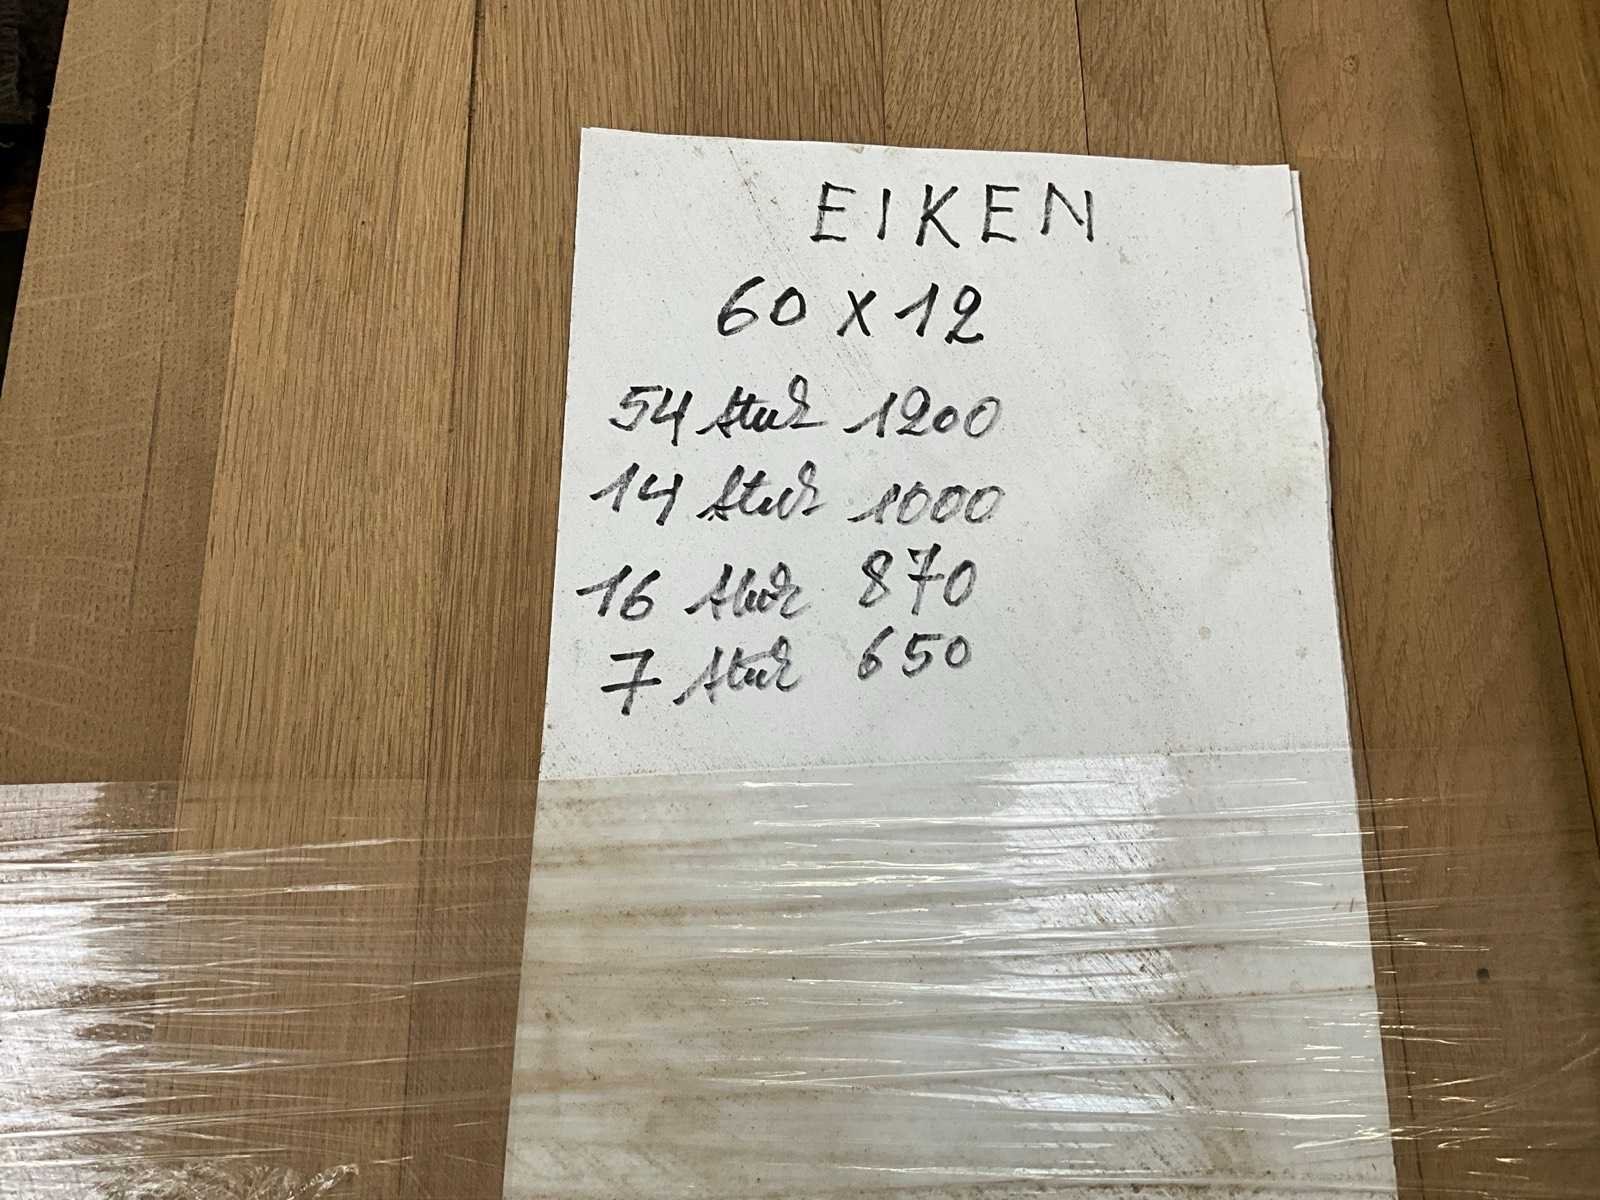 EIKEN
60 x 12
54 stuk 1200
14 stuk 1000
16 stuk 870
7 stuk 650